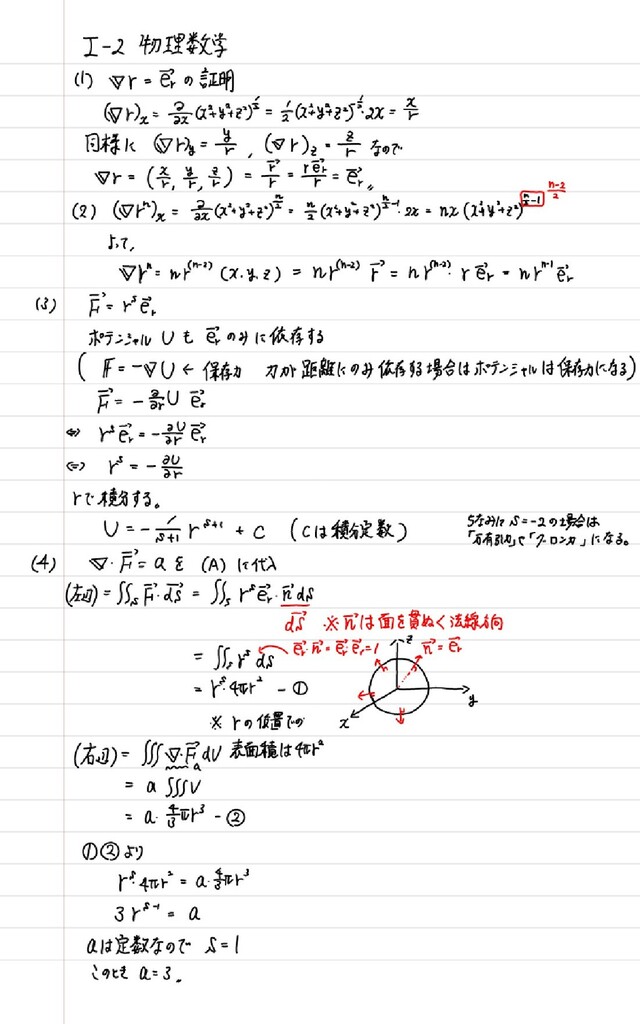 I-2 物理数学
(1) ∇r = e⃗r の証明
(∇r)x = ∂/∂x (x²+y²+z²)^{1/2} = 1/2 (x²+y²+z²)^{-1/2}・2x = x/r
同様に (∇r)y = y/r , (∇r)z = z/r なので
∇r = (x/r, y/r, z/r) = r⃗/r = r e⃗r/r = e⃗r 〃
(2) (∇rⁿ)x = ∂/∂x (x²+y²+z²)^{n/2} = n/2 (x²+y²+z²)^{n/2-1}・2x = nx (x²+y²+z²)^{n/2-1} n-2/2
よって、
∇rⁿ = n r^{(n-2)} (x, y, z) = n r^{(n-2)} r⃗ = n r^{(n-2)}・r e⃗r = n r^{n-1} e⃗r
(3) F⃗ = r^s e⃗r
ポテンシャル U も e⃗r のみに依存する
( F = -∇U ← 保存力 力が距離にのみ依存する場合はポテンシャルは保存力になる)
F⃗ = -∂/∂r U e⃗r
⇔ r^s e⃗r = -∂U/∂r e⃗r
⇔ r^s = -∂U/∂r
rで積分する。
U = -1/(s+1) r^{s+1} + C (Cは積分定数)
ちなみに s=-2の場合は
「万有引力」や「クーロン力」になる。
(4) ∇・F⃗ = a を (A) に代入
(左辺) = ∬s F⃗・dS⃗ = ∬s r^s e⃗r・n⃗ dS
dS⃗ ※ n⃗は面を貫ぬく法線方向
= ∬s r^s dS e⃗r・n⃗ = e⃗r・e⃗r = 1
z n⃗ = e⃗r
= r^s・4πr² - ①
y
x
※ rの位置での
表面積は4πr²
(右辺) = ∭ ∇・F⃗ dV
a
= a ∭V
= a・4/3 πr³ - ②
①②より
r^s・4πr² = a・4/3 πr³
3 r^{s-1} = a
aは定数なので s=1
このとき a=3。